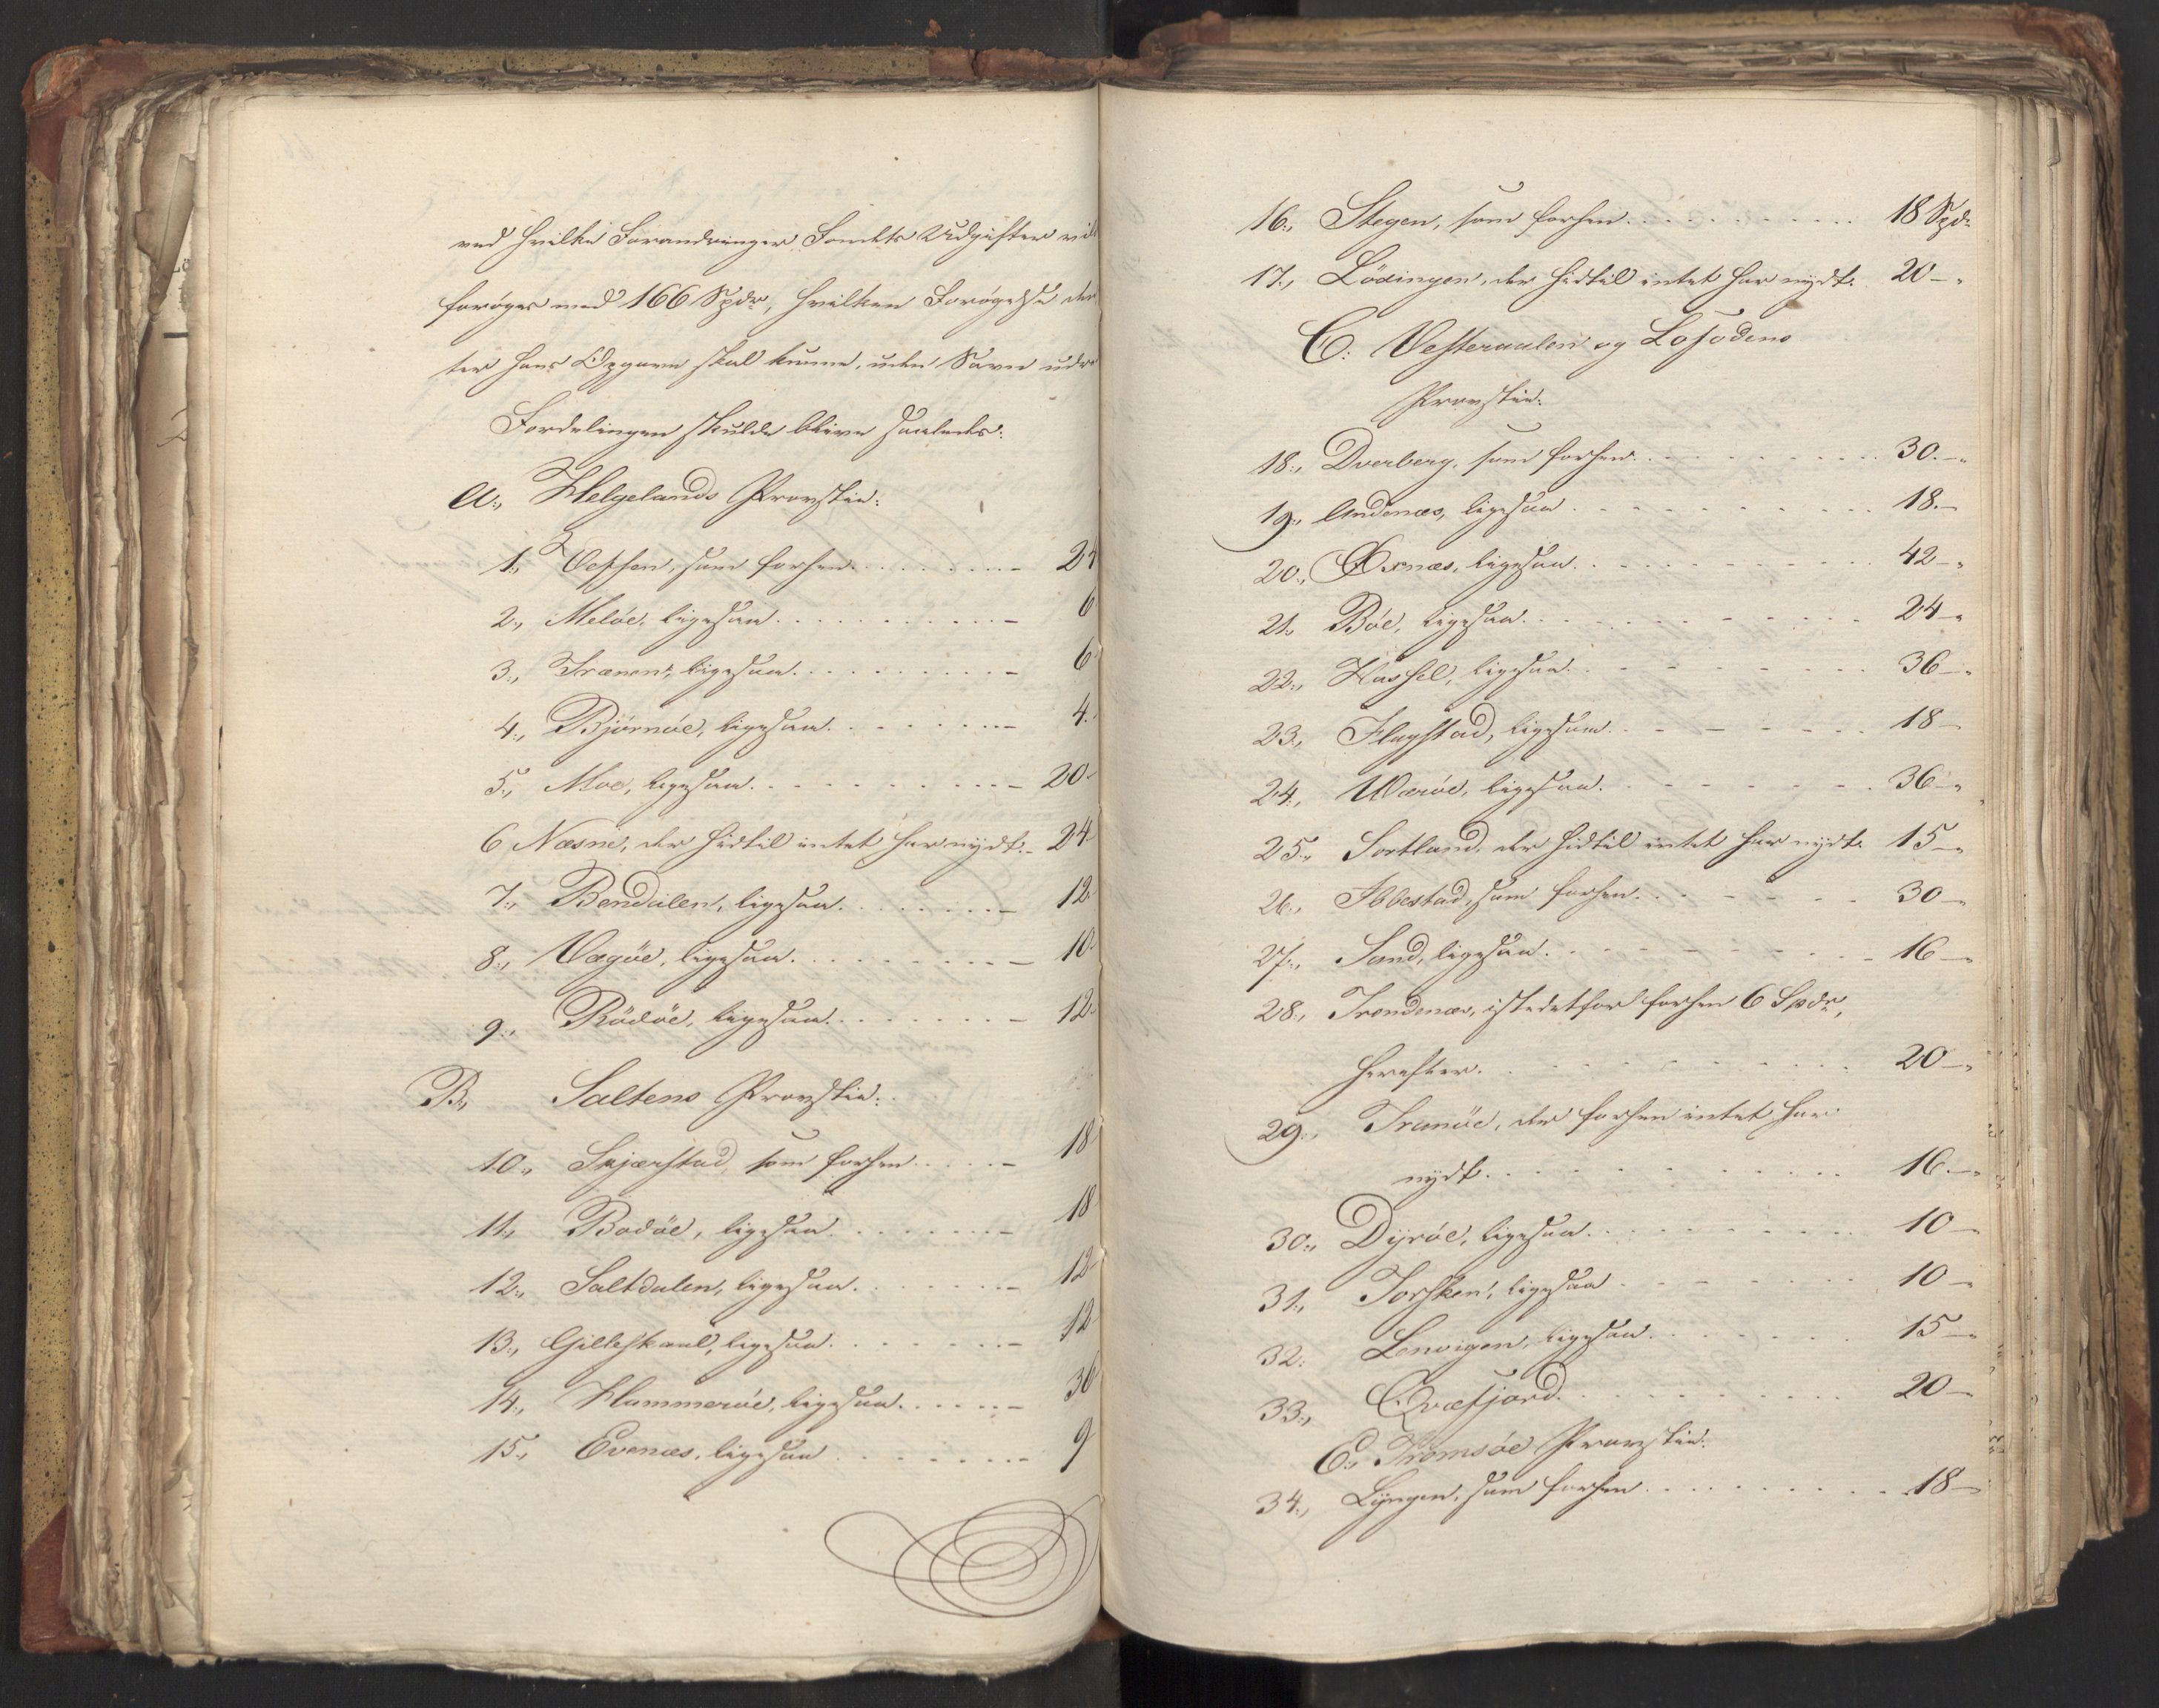 ved hvilke Forandringer Fondets Udgifter vil
forøges med 166 Spdr, hvilken Forøgelse der
ter hans Opgave skal kunne, uden Savn udre
Fordelingen skulde blive saaledes:
A., Helgelands Provstie:
1., Vefsen, som forhen . . . . . . . . 24
2., Meløe, ligesaa . . . . . . . . . . 6
3., Trænen, ligesaa . . . . . . . . . 6
4., Bjørnøe, ligesaa . . . . . . . . 4.
5., Moe, ligesaa . . . . . . . . . . 20
6 Næsne, der hidtil intet har nydt. - 24
7., Bendalen, ligesaa . . . . . . . . 12
8., Vegöe, ligesaa . . . . . . . . . 10
9., Rödöe, ligesaa . . . . . . . . 12
B., Saltens Provstie:
10., Skjærstad, som forhen . . . . . 18
11., Bodöe, ligesaa . . . . . . . 18
12., Saltdalen, ligesaa . . . . . . . 12
13., Gilleskaal, ligesaa . . . . . . . 12
14., Hammeröe, ligesaa . . . . . . 36
15., Evenæs, ligesaa . . . . . . . . 9
16., Stegen, som forhen . . . . . . . . . . 18 Spd:
17., Lödingen, der hidtil intet har nydt. 20 -
C: Vesteraalen og Lofodens
Provstie:
18., Dverberg, som forhen . . . . . . . . . 30. -
19., Andenæs, ligesaa . . . . . . . . . . 18. -
20., Öxnæs, ligesaa . . . . . . . . . . 42 -
21., Böe, ligesaa . . . . . . . . . . 24 -
22., Hassel, ligesaa . . . . . . . . . 36 -
23., Flagstad, ligesaa . . . . . . . . 18 -
24., Wæröe, ligesaa . . . . . . . . . 36 -
25., Sortland, der hidtil intet har nydt. 15 -
26., Ibbestad, som forhen . . . . . . . 30 -
27., Sand, ligesaa . . . . . . . . . . 16 -
28., Trondenæs, istedetfor forhen 6 Spdr,
herefter . . . . . . . . . . . . 20 -
29., Tranöe, der forhen intet har
nydt . . . . . . . . . . . . . 16. -
30., Dyröe, ligesaa . . . . . . . . . 10 -
31., Torsken, ligesaa . . . . . . . . 10 -
32: Lenvigen, ligesaa . . . . . . . 15 -
33., Qvæfjord . . . . . . . . . . . 20 -
E., Tromsöe Provstie:
34., Lyngen, som forhen . . . . . . . . . 18 -